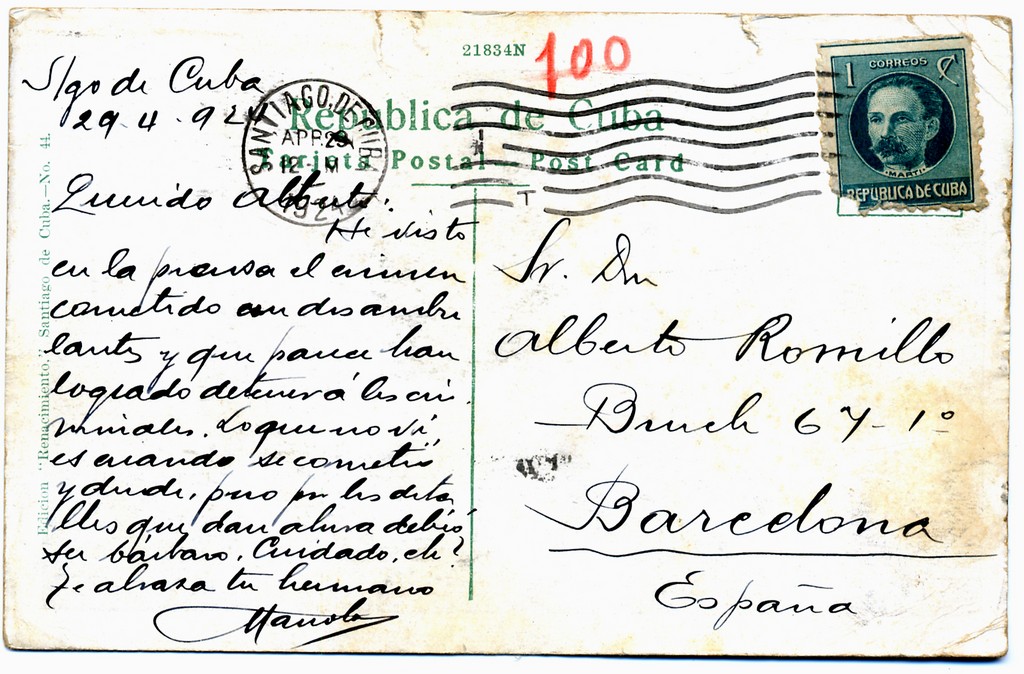 21834N
100
S/go de Cuba
29-4-924
SANTIAGO DE CUBA
APR 29
12 M
1924
República de Cuba
Tarjeta Postal - Post Card
T
1 CORREOS C
MARTI
REPUBLICA DE CUBA
Edición "Renacimiento," Santiago de Cuba.—No. 44.
Querido Alberto:
He visto
en la prensa el crimen
cometido en dos ambu
lantes y que parece han
logrado detener á los cri-
minales. Lo que no ví,
es cuando se cometió
y donde, pero por los deta
lles que dan ahora debió
ser bárbaro. Cuidado, eh?
Te abraza tu hermano
Manolo
Sr. Dn
Alberto Romillo
Bruch 67-1º
Barcelona
España